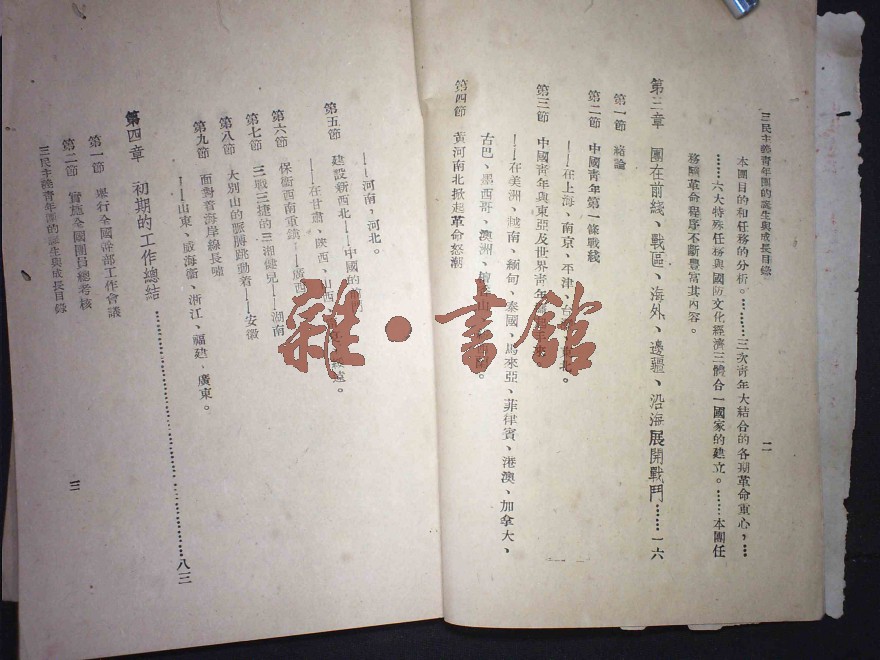 三民主義靑年團的誕生與成長目錄
二
本團目的和任務的分析。………三次靑年大結合的各期革命重心,…
……六大特殊任務與國防文化經濟三體合一國家的建立。……本團任
務隨革命程序不斷豐富其內容。
第三章 團在前綫、戰區、海外、邊疆、沿海展開戰鬥……一六
第一節 緒論
第二節 中國靑年第一條戰綫
——在上海、南京、平津、台
第三節 中國靑年與東亞及世界靑年
——在美洲、越南、緬甸、泰國、馬來亞、菲律賓、港澳、加拿大、
古巴、墨西哥、澳洲、
第四節 黃河南北掀起革命怒潮
——河南,河北。
第五節 建設新西北——中國的
——在甘肅、陝西、山西、
第六節 保衞西南重鎮——廣西
第七節 三戰三捷的三湘健兒——湖南
第八節 大別山的脈膊跳動着——安徽
第九節 面對着海岸線長嘯
——山東、威海衞、浙江、福建、廣東。
第四章 初期的工作總結………………………………八三
第一節 舉行全國幹部工作會議
第二節 實施全國團員總考核
三民主義靑年團的誕生與成長目錄
三
雜·書館